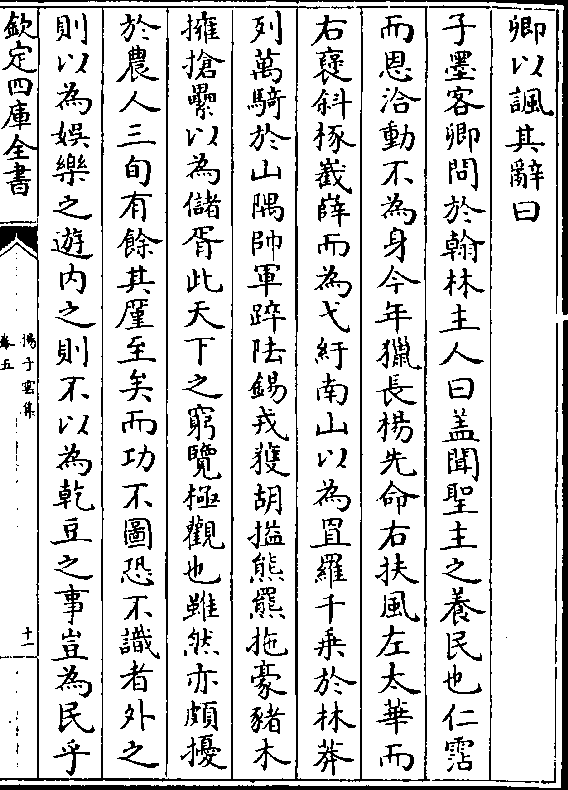 卿以諷其辭曰
子墨客卿問於翰林主人曰盖聞聖主之養民也仁霑
而恩洽動不為身今年獵長楊先命右扶風左太華而
右褒斜椓嶻薛而為弋紆南山以為罝羅千乗於林莽
列萬騎於山隅帥軍踤阹錫戎獲胡搤熊羆拖豪豬木
擁搶纍以為儲胥此天下之窮覽極觀也雖然亦頗擾
於農人三旬有餘其厪至矣而功不圖恐不識者外之
則以為娛樂之遊内之則不以為乾豆之事豈為民乎
欽定四庫全書
揚子雲集
卷五
十一